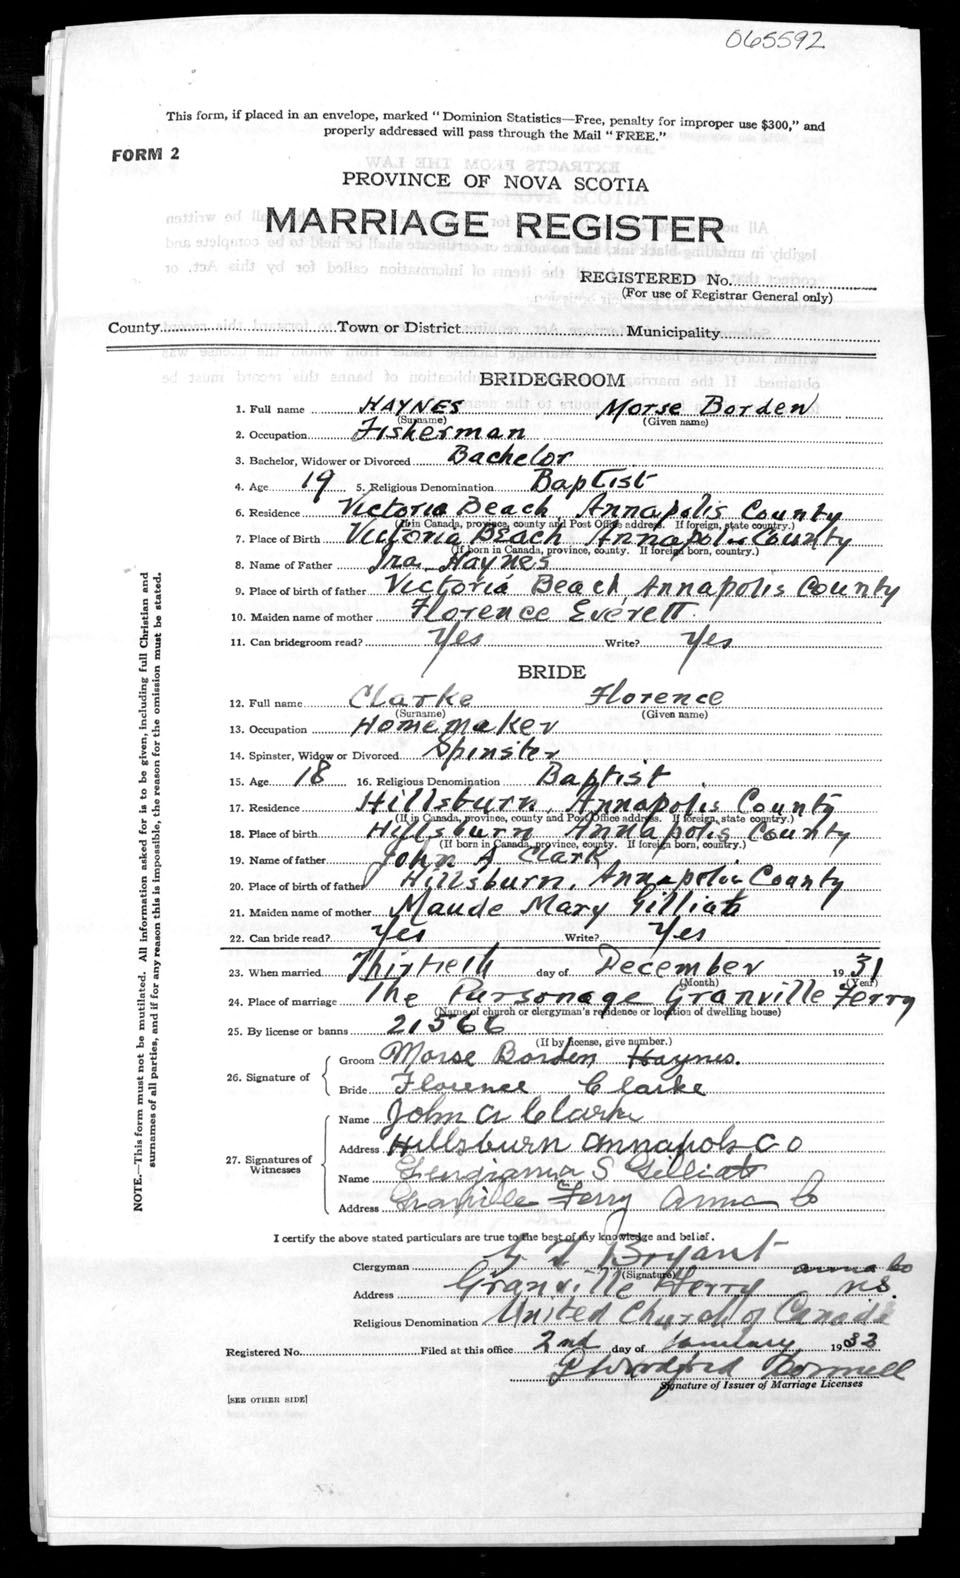 065592
This form, if placed in an envelope, marked "Dominion Statistics—Free, penalty for improper use $300," and
properly addressed will pass through the Mail "FREE."
FORM 2
PROVINCE OF NOVA SCOTIA
MARRIAGE REGISTER
REGISTERED No.
(For use of Registrar General only)
County Town or District Municipality
BRIDEGROOM
1. Full name HAYNES Morse Borden
(Surname) (Given name)
2. Occupation Fisherman
3. Bachelor, Widower or Divorced Bachelor
4. Age 19 5. Religious Denomination Baptist
6. Residence Victoria Beach, Annapolis County
(If in Canada, province, county and Post Office address. If foreign, state country.)
7. Place of Birth Victoria Beach Annapolis County
(If born in Canada, province, county. If foreign born, country.)
8. Name of Father Ira Haynes
9. Place of birth of father Victoria Beach, Annapolis County
10. Maiden name of mother Florence Everett
11. Can bridegroom read? Yes Write? Yes
BRIDE
12. Full name Clarke Florence
(Surname) (Given name)
13. Occupation Homemaker
14. Spinster, Widow or Divorced Spinster
15. Age 18 16. Religious Denomination Baptist
17. Residence Hillsburn, Annapolis County
(If in Canada, province, county and Post Office address. If foreign, state country.)
18. Place of birth Hillsburn Annapolis County
(If born in Canada, province, county. If foreign born, country.)
19. Name of father John A Clark
20. Place of birth of father Hillsburn, Annapolis County
21. Maiden name of mother Maude Mary Gilliat
22. Can bride read? Yes Write? Yes
23. When married Thirtieth day of December 1931
(Month) (Year)
24. Place of marriage The Parsonage Granville Ferry
(Name of church or clergyman's residence or location of dwelling house)
25. By license or banns 21566
(If by license, give number.)
26. Signature of Groom Morse Borden Haynes.
Bride Florence Clarke
27. Signatures of Witnesses Name John A Clarke
Address Hillsburn Annapolis Co
Name S Gilliat
Address Granville Ferry Anna Co
I certify the above stated particulars are true to the best of my knowledge and belief.
Clergyman Bryant
(Signature)
Address Granville Ferry Anna Co N.S.
Religious Denomination United Church of Canada
Registered No. Filed at this office 2nd day of January 19
Signature of Issuer of Marriage Licenses
[SEE OTHER SIDE]
NOTE.—This form must not be mutilated. All information asked for is to be given, including full Christian and
surnames of all parties, and if for any reason this is impossible, the reason for the omission must be stated.